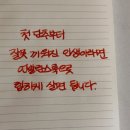 첫 단추부터
잘못 끼워진 인생이라면
언밸런스룩으로
힙하게 살면 됩니다.